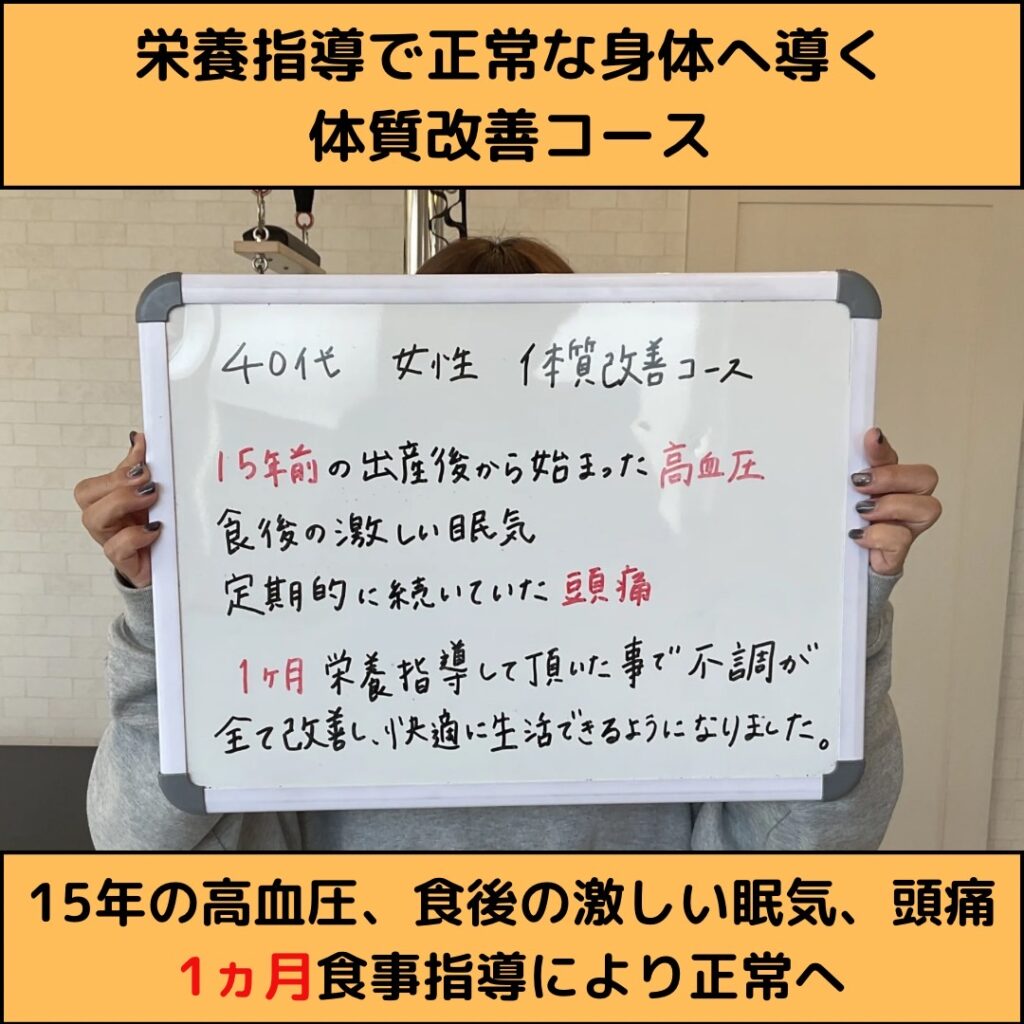 栄養指導で正常な身体へ導く
体質改善コース
40代 女性 体質改善コース
15年前の出産後から始まった高血圧
食後の激しい眠気
定期的に続いていた頭痛
1ヶ月栄養指導して頂いた事で不調が
全て改善し、快適に生活できるようになりました。
15年の高血圧、食後の激しい眠気、頭痛
1ヵ月食事指導により正常へ